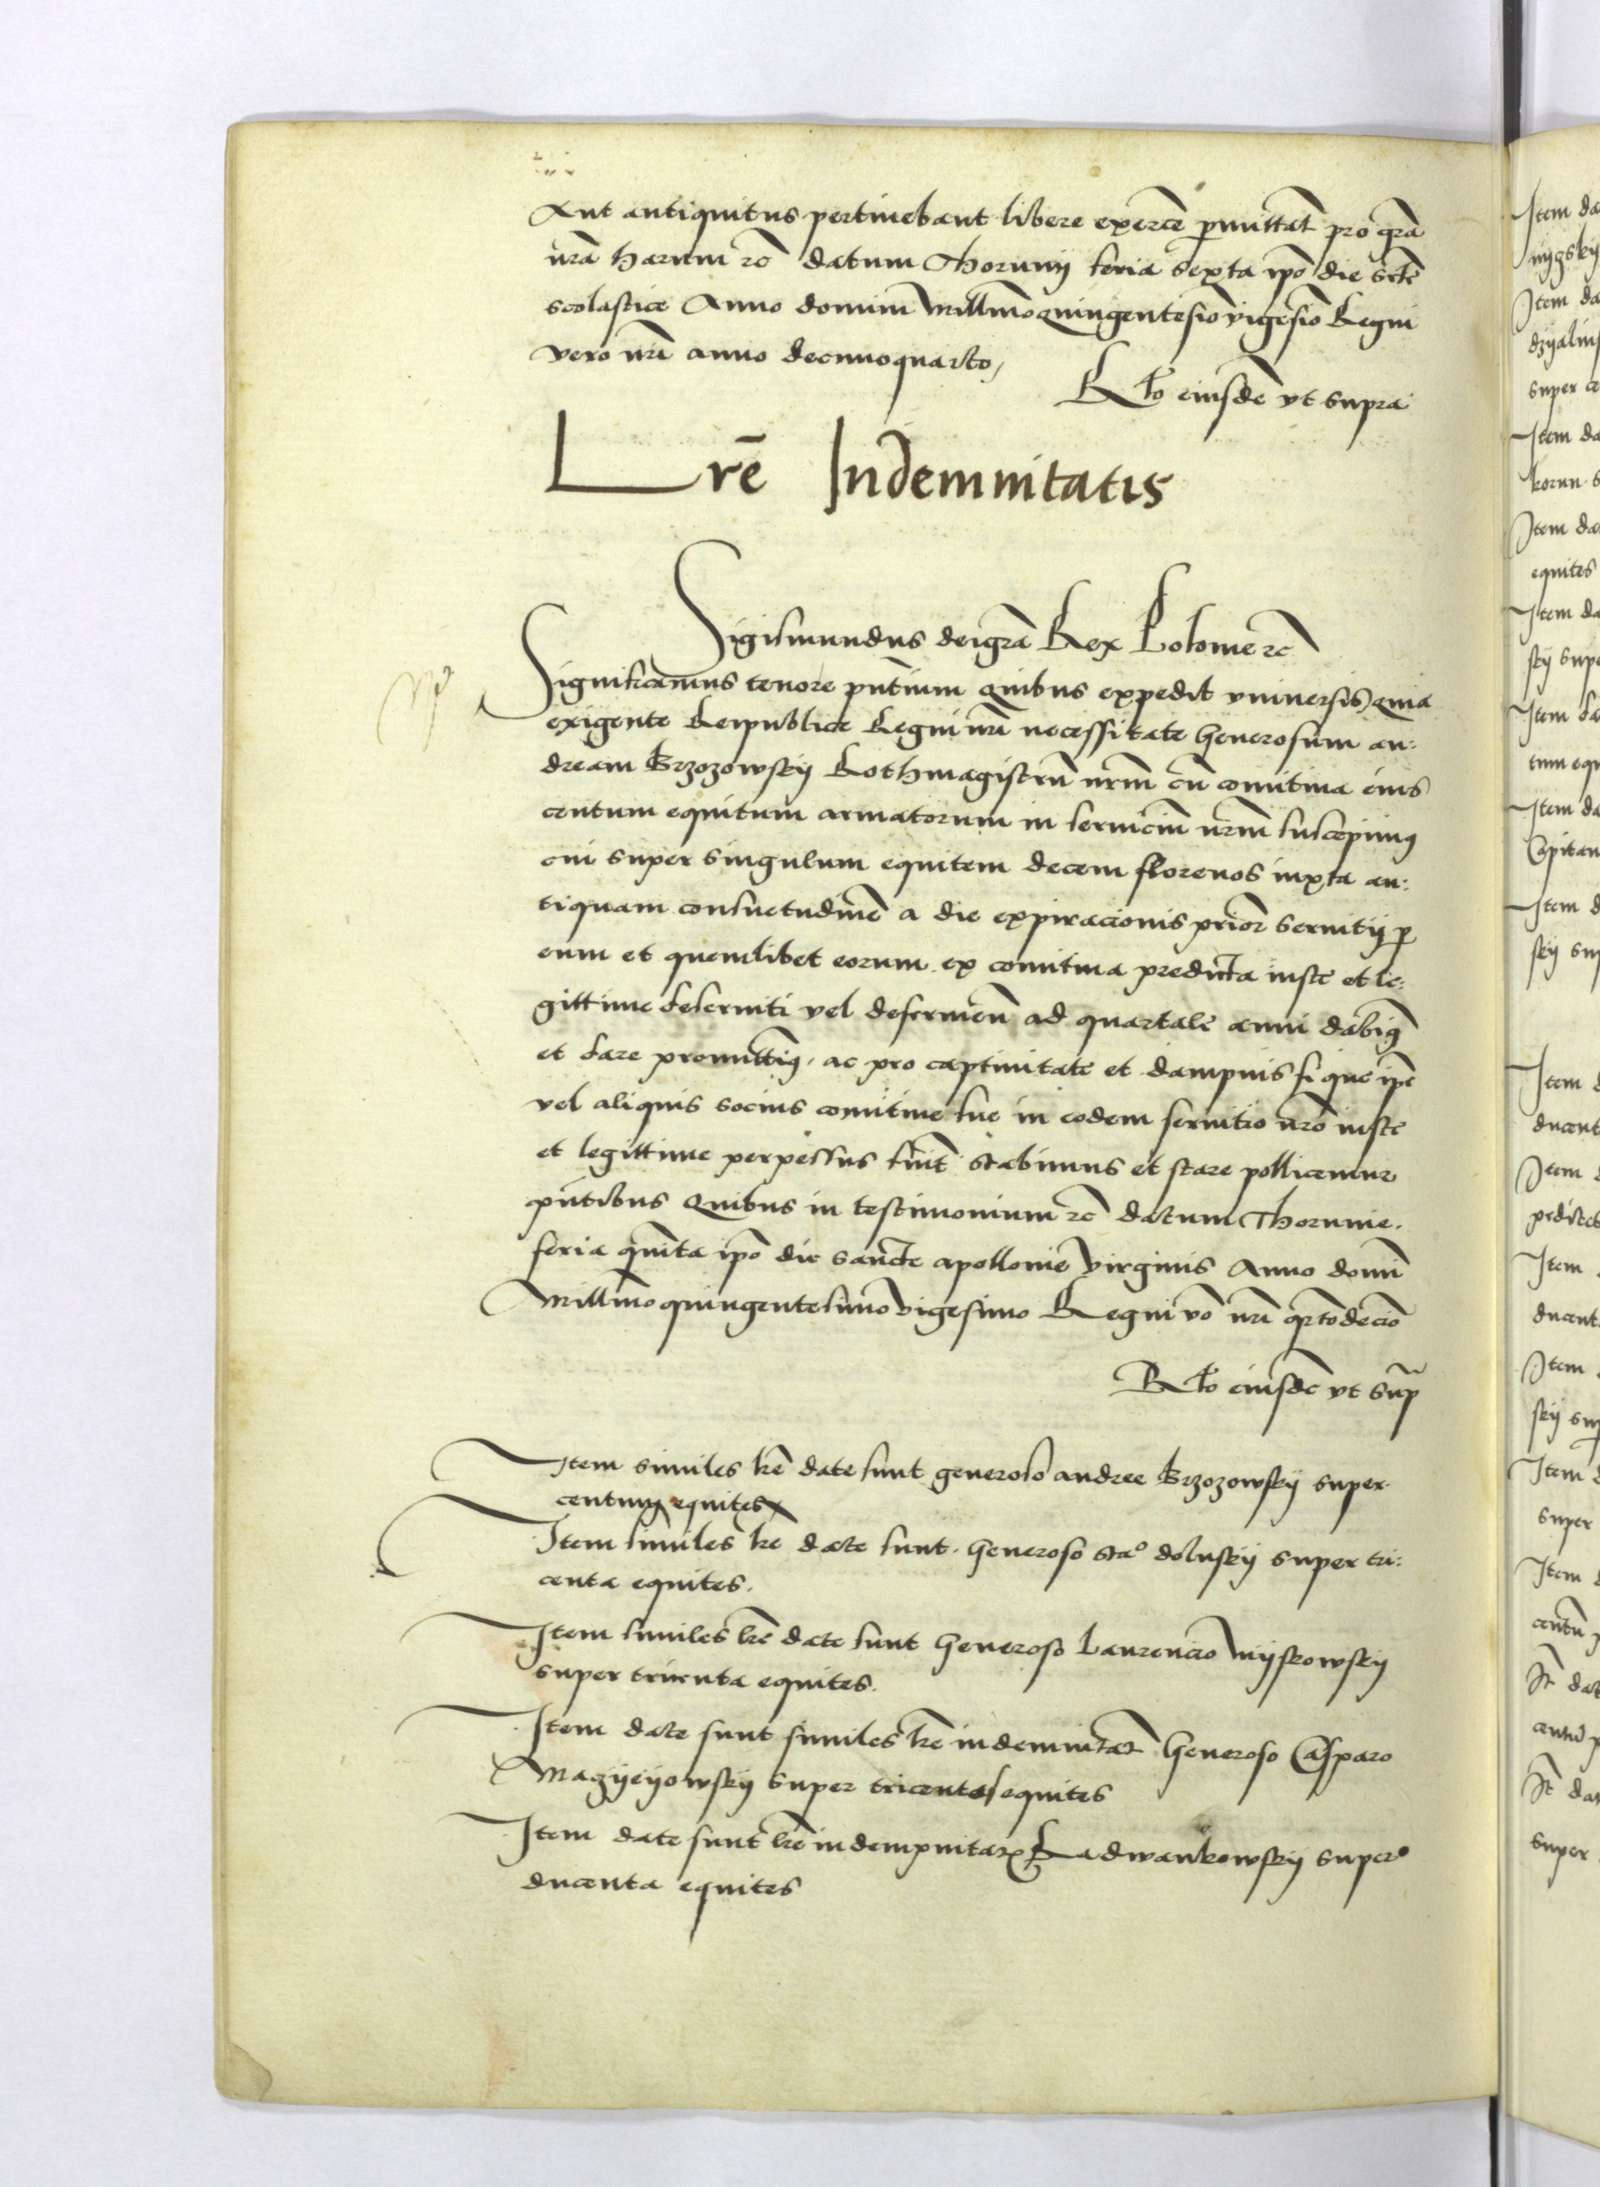 Aut antiquitus pertinebant libere exerce pmittat pro gra
nra harum rc datum Thorunij feria sexta ipo die scte
scolastice Anno domini Millmoquingentesio vigesio Regni
vero nri anno decimoquarto,
Rlo eiusde vt supra
Lre Indemnitatis
Sigismundus dei gra Rex Polonie rc
Significamus tenore pntium quibus expedit vniversis quia
exigente Reipublice Regni nri necessitate Generosum an:
dream Brzozowskij Rothmagistru nrm cu comitiva eius
centum equitum armatorum in servicium nrm suscepimus
cui super singulum equitem decem florenos iuxta an:
tiquam consuetudine a die expiracionis prior servitij p
eum et quemlibet eorum ex comitiva predicta iuste et le:
gittime deserviti vel deservien ad quartale anni dabim9
et dare promittim9, ac pro captivitate et dampnis si que ipe
vel aliquis socius comitive sue in eodem servitio nro iuste
et legittime perpessus fuit stabimus et stare pollicemur
pntibus Quibus in testimonium rc datum Thorunie.
feria quinta ipo die sancte apollonie virginis Anno domi
Millmo quingentesimo vigesimo Regni vo nri qrtodecio
Rlo eiusde vt sup
Item similes lre date sunt generoso andree Brzozowskij super
centum equites
Item similes lre date sunt. Generoso sta° doluskij super tri:
centa equites.
Item similes lre date sunt Generoso Laurencio Mijskowskij
super tricenta equites.
Item date sunt similes lre indemnitat Generoso Casparo
Maczijeijowskij super tricentas equites
Item date sunt lre indempnitatx Radwankowskij super
ducenta equites
Item da
Item da
super
Item da
Item da
equites
Item da
Item da
Item da
Capitan
Item d
Item d
ducent
Item d
pedites
Item
ducent.
Item
Item d
super
Item d
centu
It dat
centu p
It dat
super